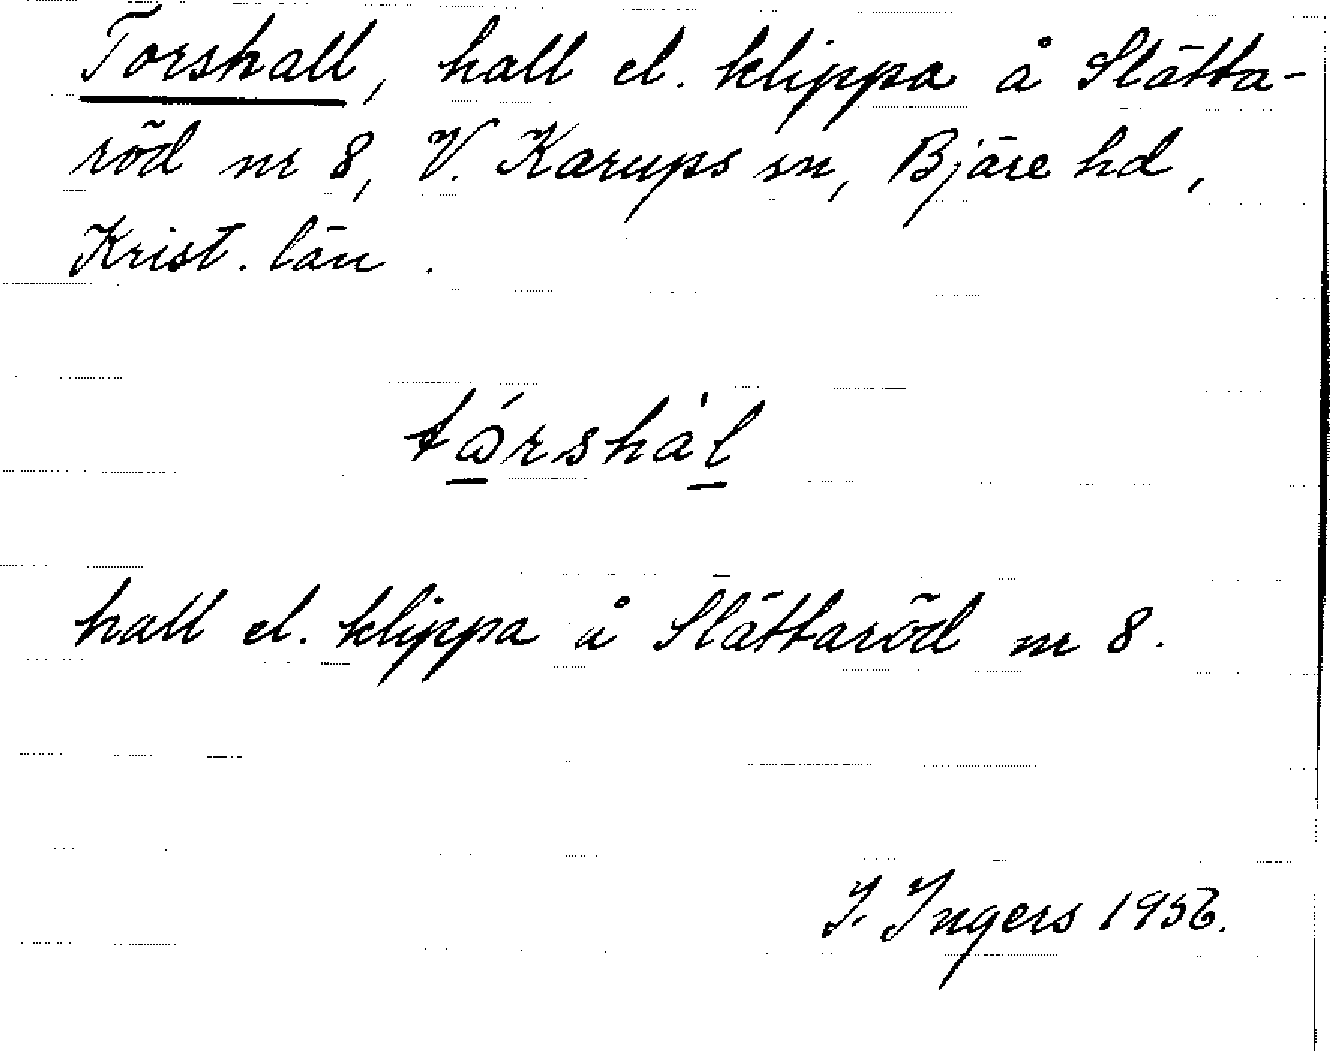 Torshall, hall el. klippa å Slätta-
röd nr 8, V. Karups sn, Bjäre hd,
Krist. län.
tɷ́rshàl
hall el. klippa å Slättaröd nr 8.
I. Ingers 1956.